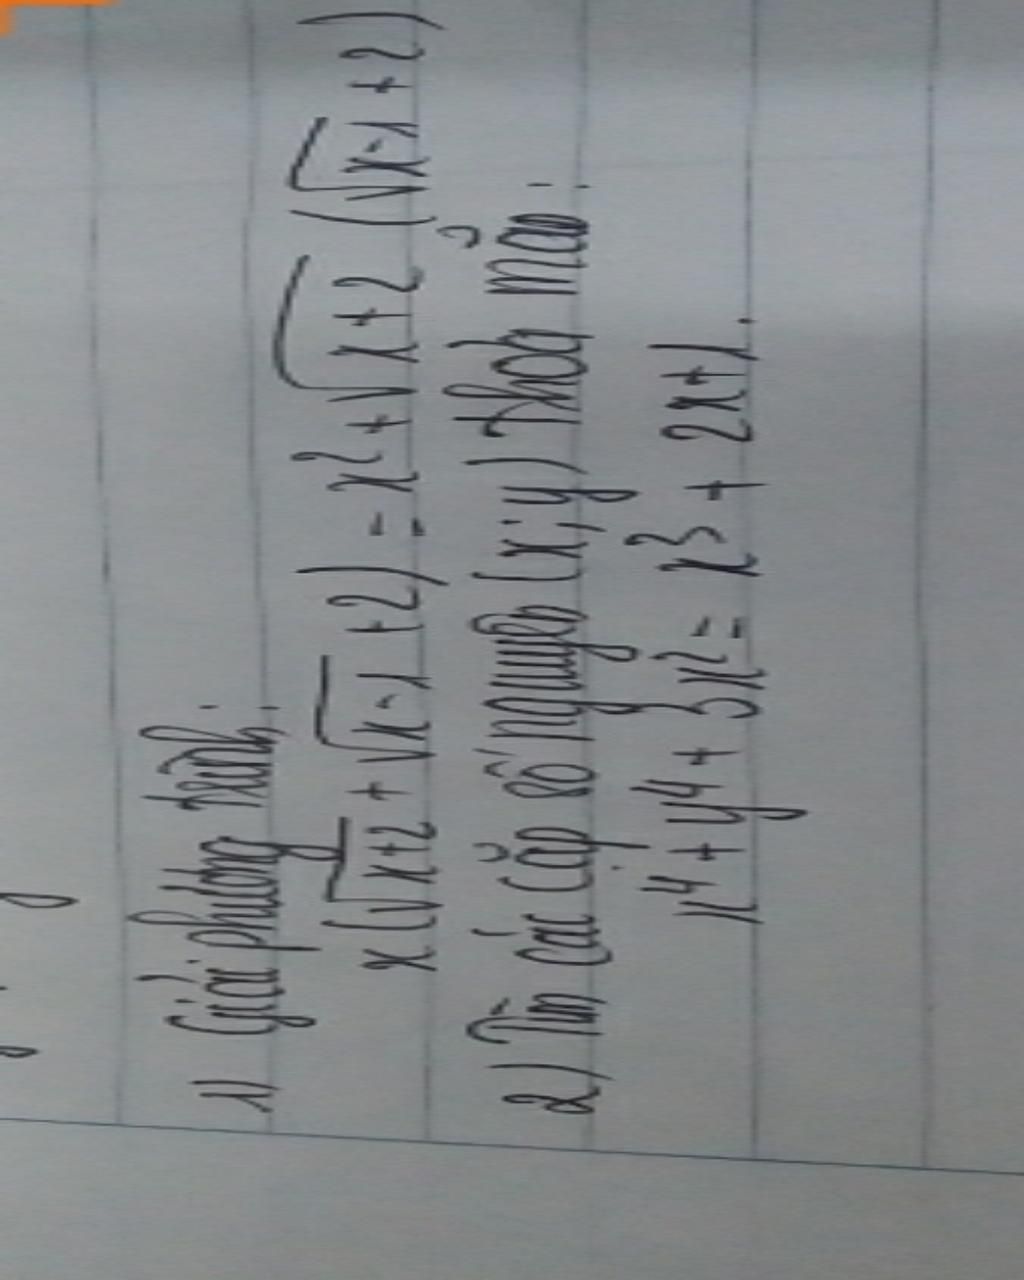 1) Giải phương trình:
x(√x+2 + √x-1 +2) = x² + √x+2 (√x-1 +2)
2) Tìm các cặp số nguyên (x;y) thỏa mãn:
x⁴ + y⁴ + 3x² = x³ + 2x+1.